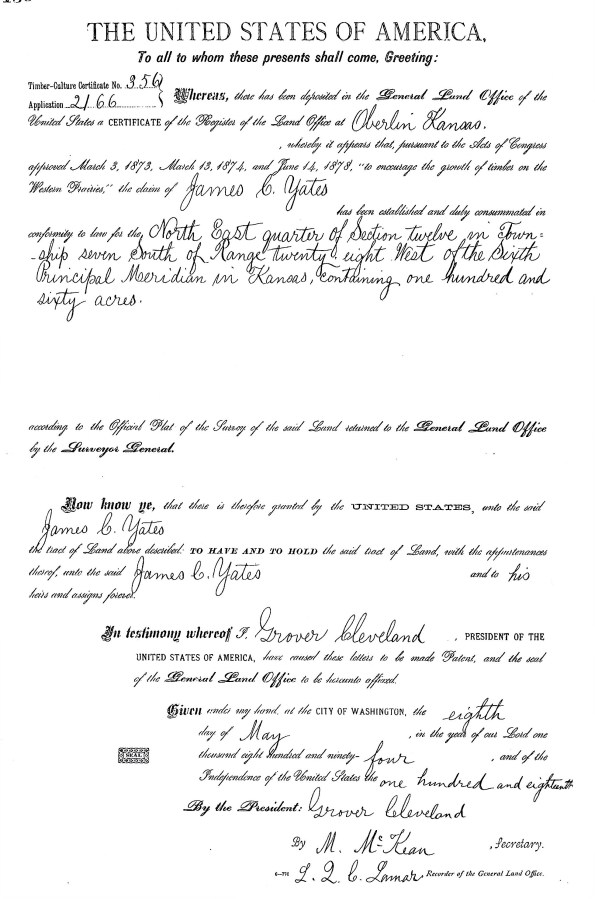 THE UNITED STATES OF AMERICA,
To all to whom these presents shall come, Greeting:
Timber-Culture Certificate No. 356
Application 2166
Whereas, there has been deposited in the General Land Office of the
United States a CERTIFICATE of the Register of the Land Office at Oberlin Kansas.
, whereby it appears that, pursuant to the Acts of Congress
approved March 3, 1873, March 13, 1874, and June 14, 1878, "to encourage the growth of timber on the
Western Prairies," the claim of James C. Yates
has been established and duly consummated in
conformity to law for the North East quarter of Section twelve in Town=
-ship seven South of Range twenty eight West of the Sixth
Principal Meridian in Kansas, containing one hundred and
sixty acres.
according to the Official Plat of the Survey of the said Land returned to the General Land Office
by the Surveyor General.
Now know ye, that there is therefore granted by the UNITED STATES, unto the said
James C. Yates
the tract of Land above described: TO HAVE AND TO HOLD the said tract of Land, with the appurtenances
thereof, unto the said James C. Yates and to his
heirs and assigns forever.
In testimony whereof I, Grover Cleveland, PRESIDENT OF THE
UNITED STATES OF AMERICA, have caused these letters to be made Patent, and the seal
of the General Land Office to be hereunto affixed.
Given under my hand, at the CITY OF WASHINGTON, the eighth
day of May, in the year of our Lord one
thousand eight hundred and ninety-four, and of the
Independence of the United States the one hundred and eighteenth
SEAL
By the President: Grover Cleveland
By M. McKean, Secretary.
L. Q. C. Lamar, Recorder of the General Land Office.